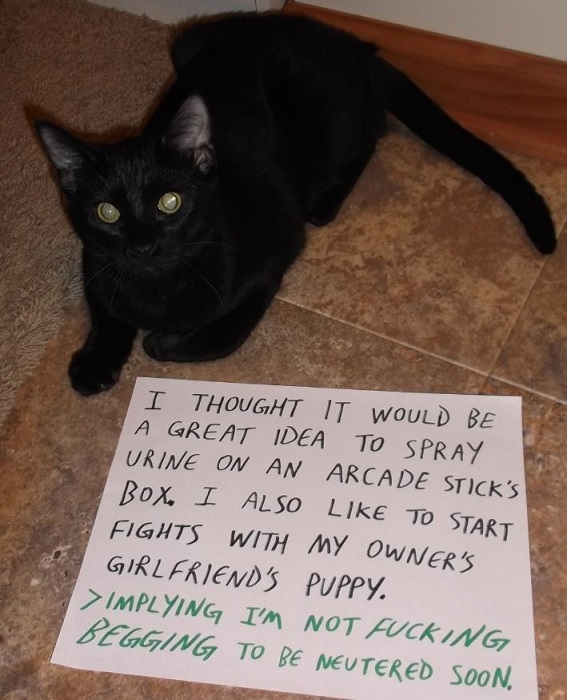 I THOUGHT IT WOULD BE
A GREAT IDEA TO SPRAY
URINE ON AN ARCADE STICK'S
BOX. I ALSO LIKE TO START
FIGHTS WITH MY OWNER'S
GIRLFRIEND'S PUPPY.
>IMPLYING I'M NOT FUCKING
BEGGING TO BE NEUTERED SOON.